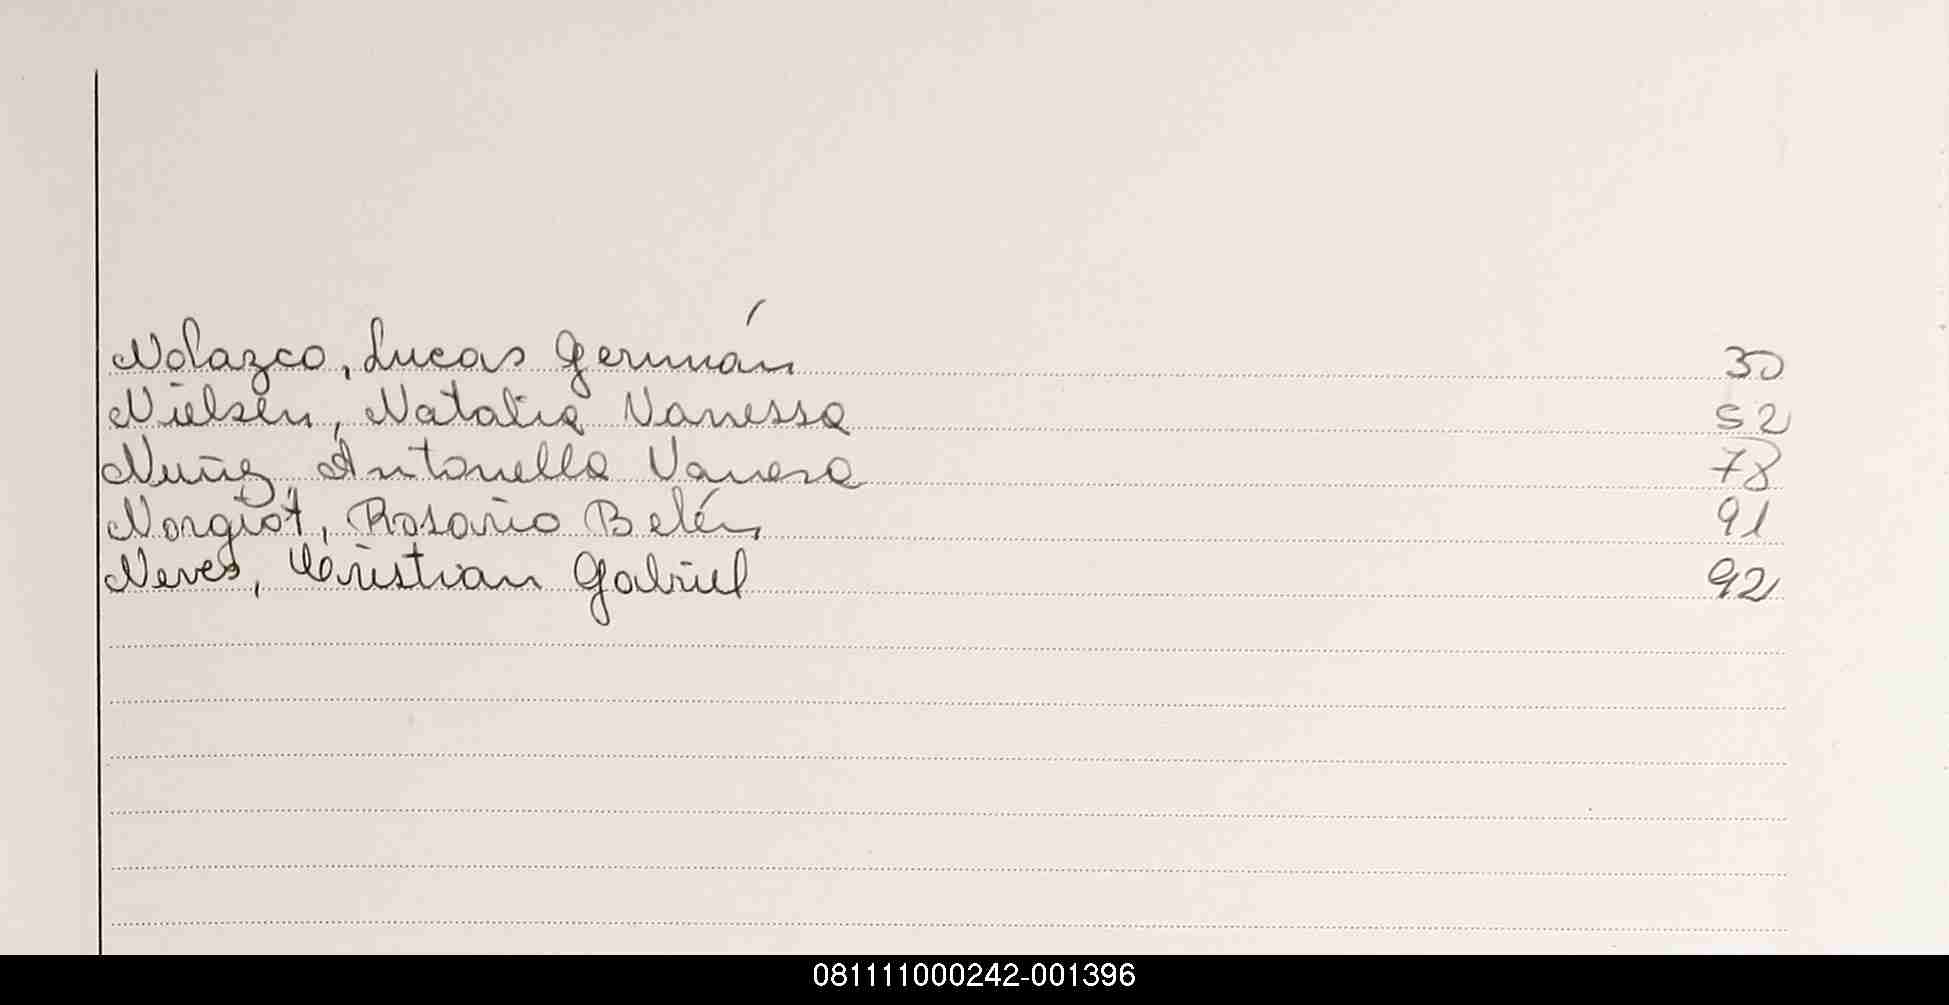 Nolazco, Lucas Germán 30
Nielsen, Natalia Vanessa 52
Nuñz, Antonella Vanesa 78
Norgiot, Rosario Belén 91
Neves, Cristian Gabriel 92
081111000242-001396